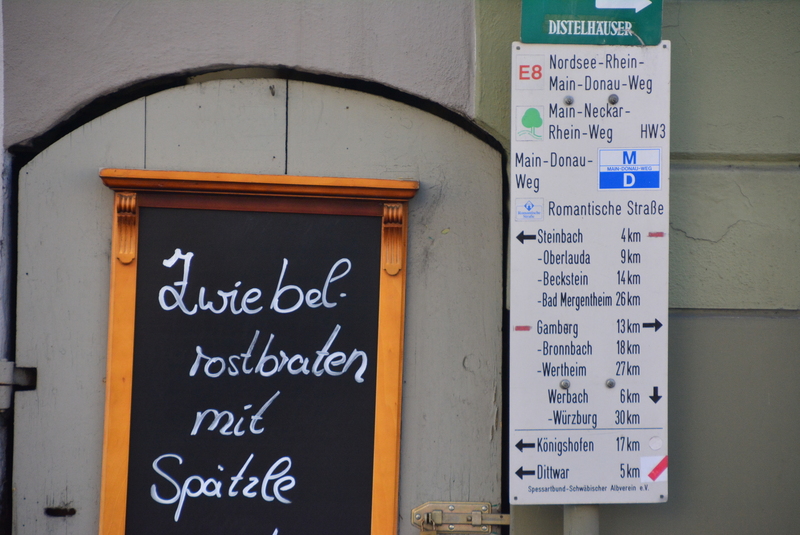 Zwiebel-
rostbraten
mit
Spätzle
DISTELHÄUSER
E8 Nordsee-Rhein-
Main-Donau-Weg
Main-Neckar-
Rhein-Weg HW3
Main-Donau-
Weg
M
MAIN-DONAU-WEG
D
Romantische Straße
Steinbach 4 km
-Oberlauda 9 km
-Beckstein 14 km
-Bad Mergentheim 26 km
Gamberg 13 km
-Bronnbach 18 km
-Wertheim 27 km
Werbach 6 km
-Würzburg 30 km
Königshofen 17 km
Dittwar 5 km
Spessartbund-Schwäbischer Albverein e.V.